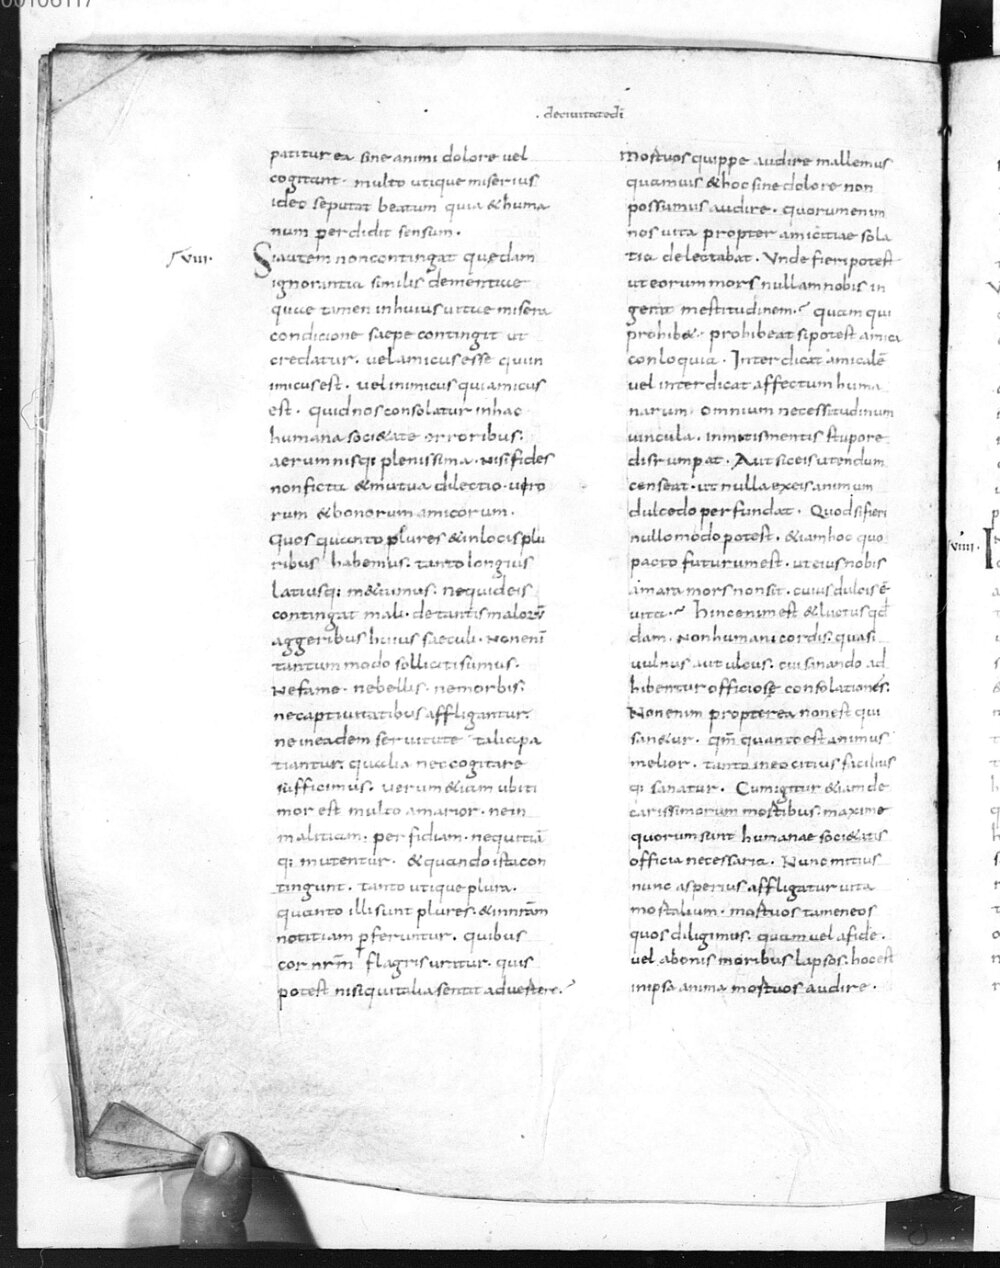 00106117
deciuitatedi
patitur ea sine animi dolore uel
cogitant. multo utique miserius
ideo se putat beatum quia & huma
num perdidit sensum.
VIII.
Si autem non contingat quędam
ignorantia similis dementiae
quae tamen in huius uitae misera
condicione saepe contingit ut
credatur. uel amicus esse qui in
imicus est. uel inimicus qui amicus
est. quid nos consolatur in hac
humana soci&ate erroribus.
aerumnisq; plenissima. Nisi fides
non ficta & mutua dilectio. uero
rum & bonorum amicorum.
Quos quanto plures & in locis plu
ribus habemus. tanto longius
latiusq; m&uimus. ne quid eis
contingat mali. de tantis maloru
aggeribus huius saeculi. Non eni
tantum modo solliciti sumus.
Ne fame. ne bellis. ne morbis.
ne captiuitatibus affligantur.
ne in eadem seruitute talia pa
tiantur. qualia nec cogitare
sufficimus. uerum &iam ubi ti
mor est multo amarior. ne in
malitiam. perfidiam. nequitiā
q; mutentur. & quando ista con
tingunt. tanto utique plura.
quanto illi sunt plures. & in nram
notitiam pferuntur. quibus
cor nrm flagris uritur. quis
potest nisi qui talia sentit aduertere.
Mortuos quippe audire mallemus
quamuis & hoc sine dolore non
possumus audire. quorum enim
nos uita propter amicitiae sola
tia delectabat. Unde fieri potest
ut eorum mors nullam nobis in
gerat mestitudinem. quam qui
prohib&. prohibeat si potest amica
conloquia. Interdicat amicalē
uel interdicat affectum huma
narum omnium necessitudinum
uincula. inmitis mentis stupore
disrumpat. Aut sic eis utendum
censeat. ut nulla ex eis animum
dulcedo perfundat. Quod si fieri
nullo modo potest. &iam hoc quo
pacto futurum est. ut eius nobis
amara mors non sit. cuius dulcis ē
uita. hinc enim est & luctus qđ
dam. Non humani cordis. quasi
uulnus aut ulcus. cui sinando ad
hibentur officiose consolationes.
Non enim propterea non est qui
san&ur. qm quanto est animus
melior. tanto in eo citius facilius
q; sanatur. Cum igitur &iam de
carissimorum mortibus. maxime
quorum sunt humanae soci&atis
officia necessaria. Nunc mitius
nunc asperius affligatur uita
mortalium. mortuos tamen eos
quos diligimus. quam uel a fide.
uel a bonis moribus lapsos. hoc est
in ipsa anima mortuos audire.
VIIII.